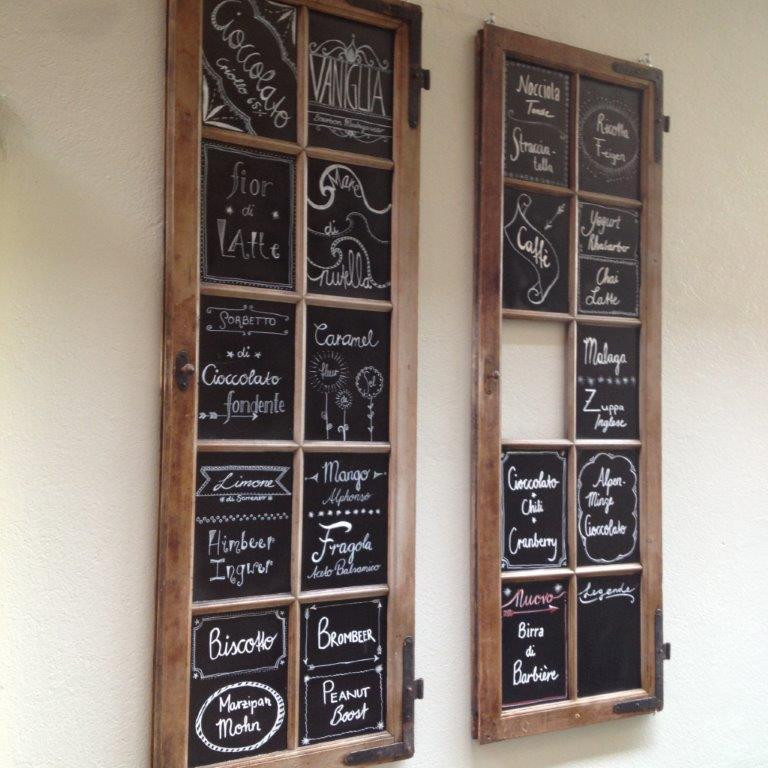 Cioccolato
Criollo 65%
VANIGLIA
Bourbon Madagascar
fior
di
LATTe
Mare
di
nutella
SORBETTO
di
Cioccolato
fondente
Caramel
fleur
de
Sel
Limone
di Sorrento
Himbeer
Ingwer
Mango
Alphonso
Fragola
Aceto Balsamico
Biscotto
Marzipan
Mohn
BROMBEER
PEANUT
Boost
Nocciola
Tonda
Straccia-
tella
Ricotta
Feigen
Caffè
Yogurt
Rhabarbo
Chai
Latte
Malaga
Zuppa
Inglese
Cioccolato
Chili
Cranberry
Alpen-
Minze
Cioccolato
Nuovo
Birra
di
Barbière
Legende